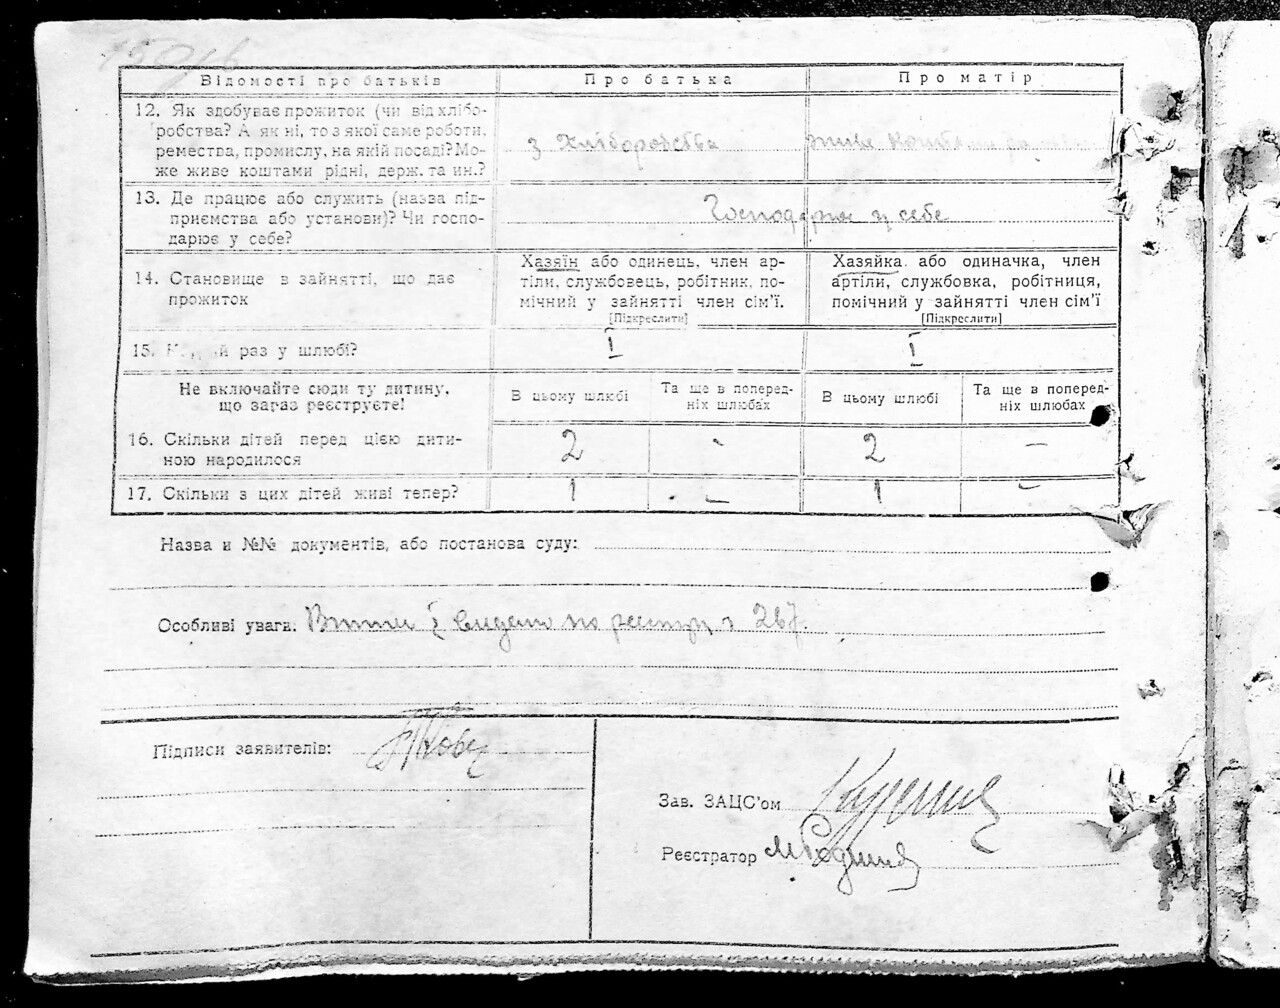 Відомості про батьків Про батька Про матір
12. Як здобуває прожиток (чи від хлібо-
робства? А як ні, то з якої саме роботи,
ремества, промислу, на якій посаді? Мо-
же живе коштами рідні, держ. та ин.?
з Хліборобства живе
13. Де працює або служить (назва під-
приємства або установи)? Чи госпо-
дарює у себе?
Господарює у себе
14. Становище в зайнятті, що дає
прожиток
Хазяїн або одинець, член ар-
тіли, службовець, робітник, по-
мічний у зайнятті член сім'ї.
[Підкреслити]
Хазяйка або одиначка, член
артіли, службовка, робітниця,
помічний у зайнятті член сім'ї
[Підкреслити]
15. раз у шлюбі? I I
Не включайте сюди ту дитину,
що зараз реєструєте!
В цьому шлюбі
Та ще в поперед-
ніх шлюбах
В цьому шлюбі
Та ще в поперед-
ніх шлюбах
16. Скільки дітей перед цією дити-
ною народилося
2 - 2 —
17. Скільки з цих дітей живі тепер? 1 — 1 —
Назва и №№ документів, або постанова суду:
Особливі уваги: видано по реєстру 267.
Підписи заявителів:
Зав. ЗАЦС'ом
Реєстратор